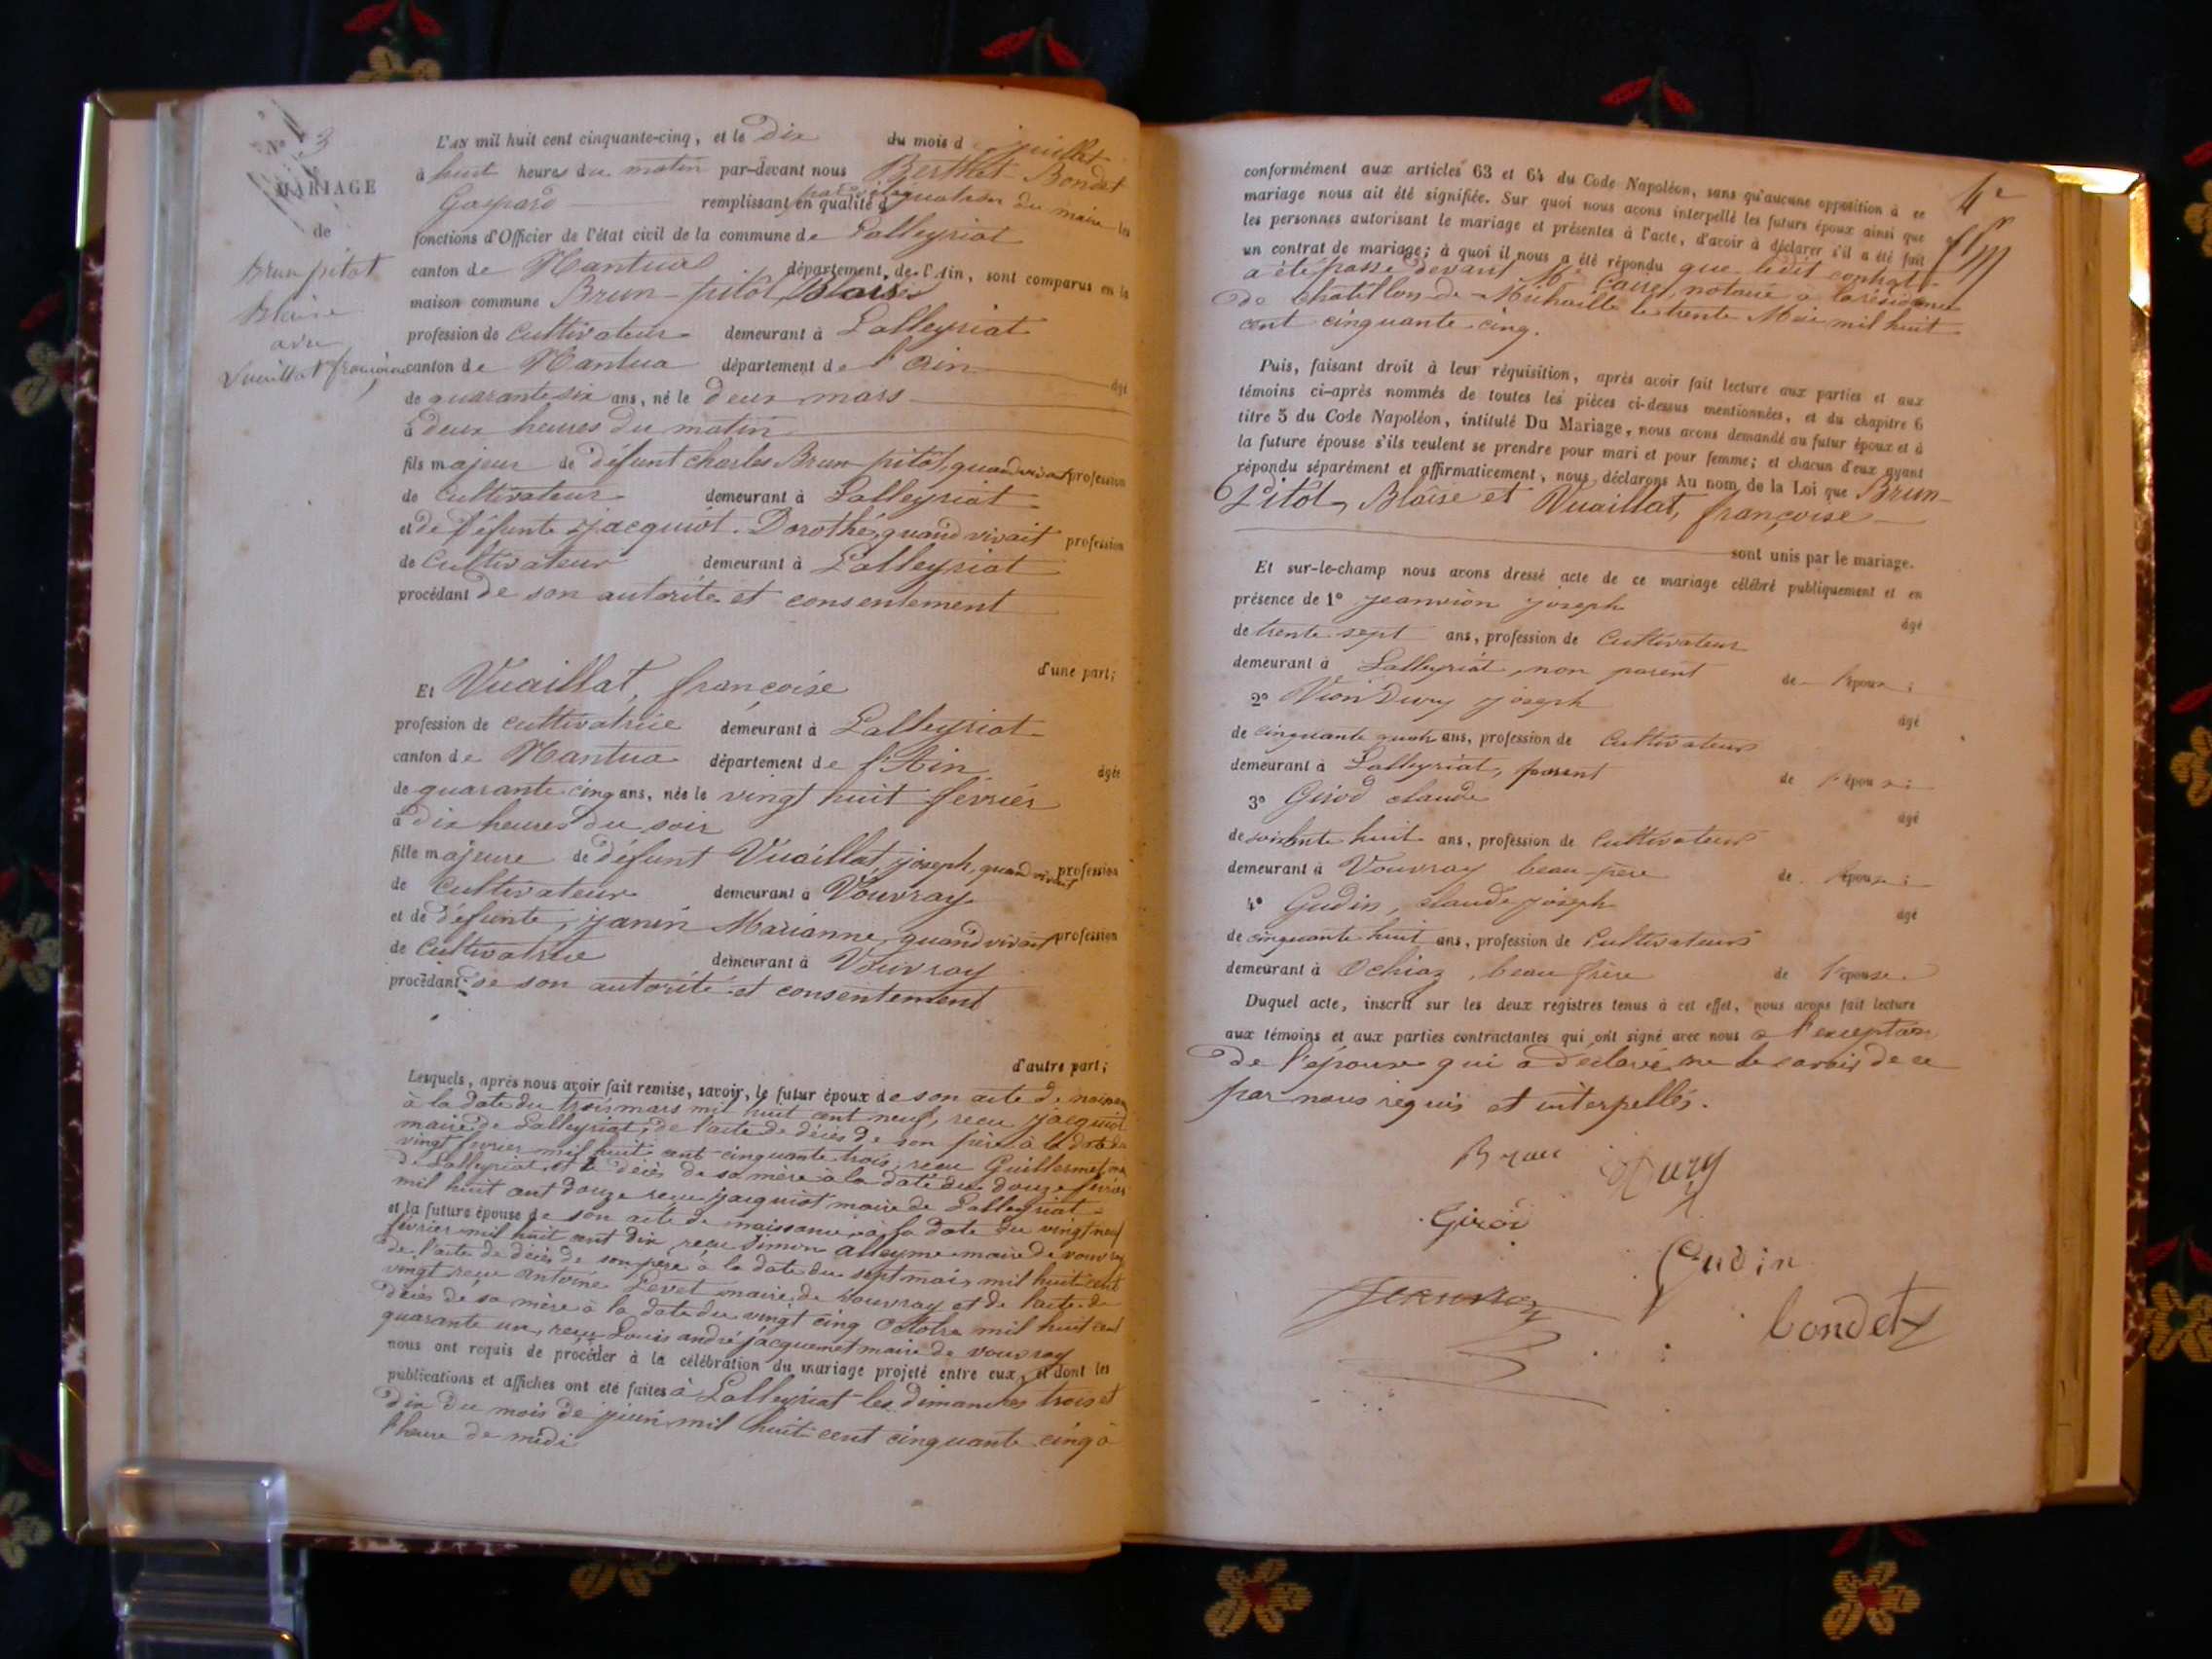 N° 3
MARIAGE
de
Brun pitot
Blaise
avec
Vuaillat françoise
L'AN mil huit cent cinquante-cinq, et le Dix du mois d juillet
à huit heures du matin par-devant nous Berthet Bondet
Gaspard remplissant en qualité d du maire les
fonctions d'Officier de l'état civil de la commune de Lalleyriat
canton de Nantua département de l'Ain, sont comparus en la
maison commune Brun-pitôt, Blaise
profession de cultivateur demeurant à Lalleyriat
canton de Nantua département de l'Ain âgé
de quarante six ans, né le deux mars
à deux heures du matin
fils majeur de défunt charles Brun pitôt, quand vivait profession
de cultivateur demeurant à Lalleyriat
et de défunte jacquiot Dorothé, quand vivait profession
de cultivateur demeurant à Lalleyriat
procédant de son autorité et consentement
d'une part;
Et Vuaillat, françoise
profession de cultivatrice demeurant à Lalleyriat
canton de Nantua département de l'Ain âgée
de quarante cinq ans, née le vingt huit fevrier
à dix heures du soir
fille majeure de défunt Vuaillat, joseph, quand vivait profession
de cultivateur demeurant à Vouvray
et de défunte, janin Marianne, quand vivait profession
de cultivatrice demeurant à Vouvray
procédant de son autorité et consentement
d'autre part;
Lesquels, après nous avoir fait remise, savoir, le futur époux de son acte de
à la date du trois mars mil huit cent neuf, recu jacquiot
maire de Lalleyriat, de l'acte de décès de son père à la date du
vingt fevrier mil huit cent cinquante trois, recu Guillermet
de Lalleyriat, et décès de sa mère à la date du douze fevrier
mil huit cent douze recu jacquiot maire de Lalleyriat
et la future épouse de son acte de naissance à la date du vingt neuf
février mil huit cent dix recu Simon maire de vouvray
de l'acte de décès de son père à la date du sept mai mil huit cent
vingt recu antoine Levet maire de vouvray et de l'acte de
décès de sa mère à la date du vingt cinq Octobre mil huit cent
quarante un, recu Louis andré jacquemet maire de vouvray
nous ont requis de procéder à la célébration du mariage projeté entre eux, et dont les
publications et affiches ont été faites à Lalleyriat les dimanches trois et
dix du mois de juin mil huit cent cinquante cinq à
l'heure de midi
4e
conformément aux articles 63 et 64 du Code Napoléon, sans qu'aucune opposition à ce
mariage nous ait été signifiée. Sur quoi nous avons interpellé les futurs époux ainsi que
les personnes autorisant le mariage et présentes à l'acte, d'avoir à déclarer s'il a été fait
un contrat de mariage; à quoi il nous a été répondu que ledit contrat
a été passé devant Me notaire à la résidence
de chatillon-de-Michaille le trente Mai mil huit
cent cinquante cinq.
Puis, faisant droit à leur réquisition, après avoir fait lecture aux parties et aux
témoins ci-après nommés de toutes les pièces ci-dessus mentionnées, et du chapitre 6
titre 5 du Code Napoléon, intitulé Du Mariage, nous avons demandé au futur époux et à
la future épouse s'ils veulent se prendre pour mari et pour femme; et chacun d'eux ayant
répondu séparément et affirmativement, nous déclarons Au nom de la Loi que Brun-
pitôt, Blaise et Vuaillat, françoise
sont unis par le mariage.
Et sur-le-champ nous avons dressé acte de ce mariage célébré publiquement et en
présence de 1° jeanvion joseph âgé
de trente sept ans, profession de cultivateur
demeurant à Lalleyriat, non parent de l'époux;
2° Vion Dury joseph âgé
de cinquante ans, profession de cultivateur
demeurant à Lalleyriat, parent de l'époux;
3° Girod claude âgé
de soixante huit ans, profession de cultivateur
demeurant à Vouvray beau-père de
4° Gudin, claude joseph âgé
de cinquante huit ans, profession de cultivateur
demeurant à Ochiaz, beau frère de l'épouse.
Duquel acte, inscrit sur les deux registres tenus à cet effet, nous avons fait lecture
aux témoins et aux parties contractantes qui ont signé avec nous à l'exception
de l'épouse qui a déclaré ne le savoir de ce
par nous requis et interpellés.
Brun Dury
Girod
Gudin
Jeanvion
bondet